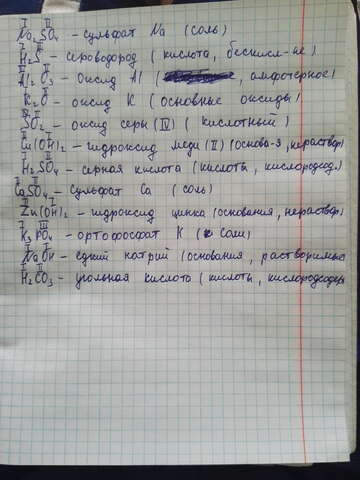 I II
Na₂SO₄ - сульфат Na (соль)
I II
H₂S - сероводород (кислота, бескисл-не)
III II
Al₂O₃ - оксид Al (амфотерное)
I II
K₂O - оксид K (основные оксиды)
IV II
SO₂ - оксид серы (IV) (кислотный)
II I
Cu(OH)₂ - гидроксид меди (II) (основа-я, нераствор
I II
H₂SO₄ - серная кислота (кислоты, кислородсод)
II II
CaSO₄ - сульфат Ca (соль)
II I
Zn(OH)₂ - гидроксид цинка (основания, нераствор)
I III
K₃PO₄ - ортофосфат K (соли)
I I
NaOH - едкий натрий (основания, растворимые
I II
H₂CO₃ - угольная кислота (кислоты, кислородсодерж